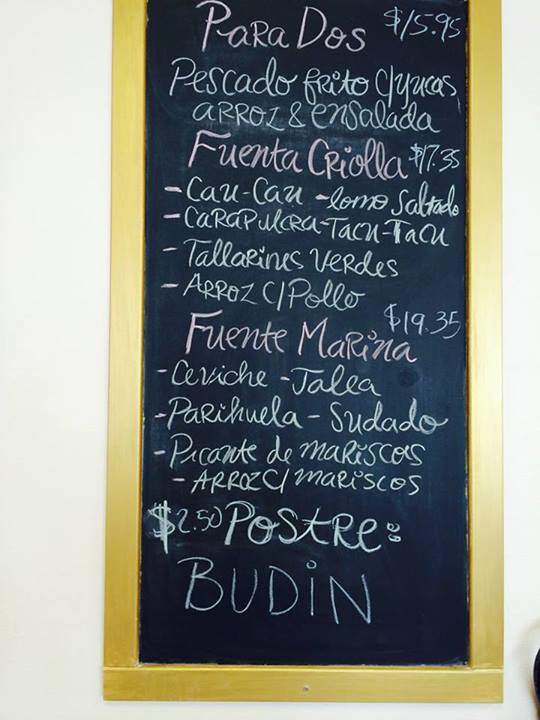 Para Dos $15.95
Pescado frito c/yucas
arroz & ensalada
Fuenta Criolla $17.35
- Cau-Cau - lomo Saltado
- Carapulcra-Tacu-Tacu
- Tallarines Verdes
- Arroz c/Pollo
Fuente Marina $19.35
- Ceviche - Jalea
- Parihuela - Sudado
- Picante de mariscos
- Arroz c/ mariscos
$2.50 Postre:
Budin